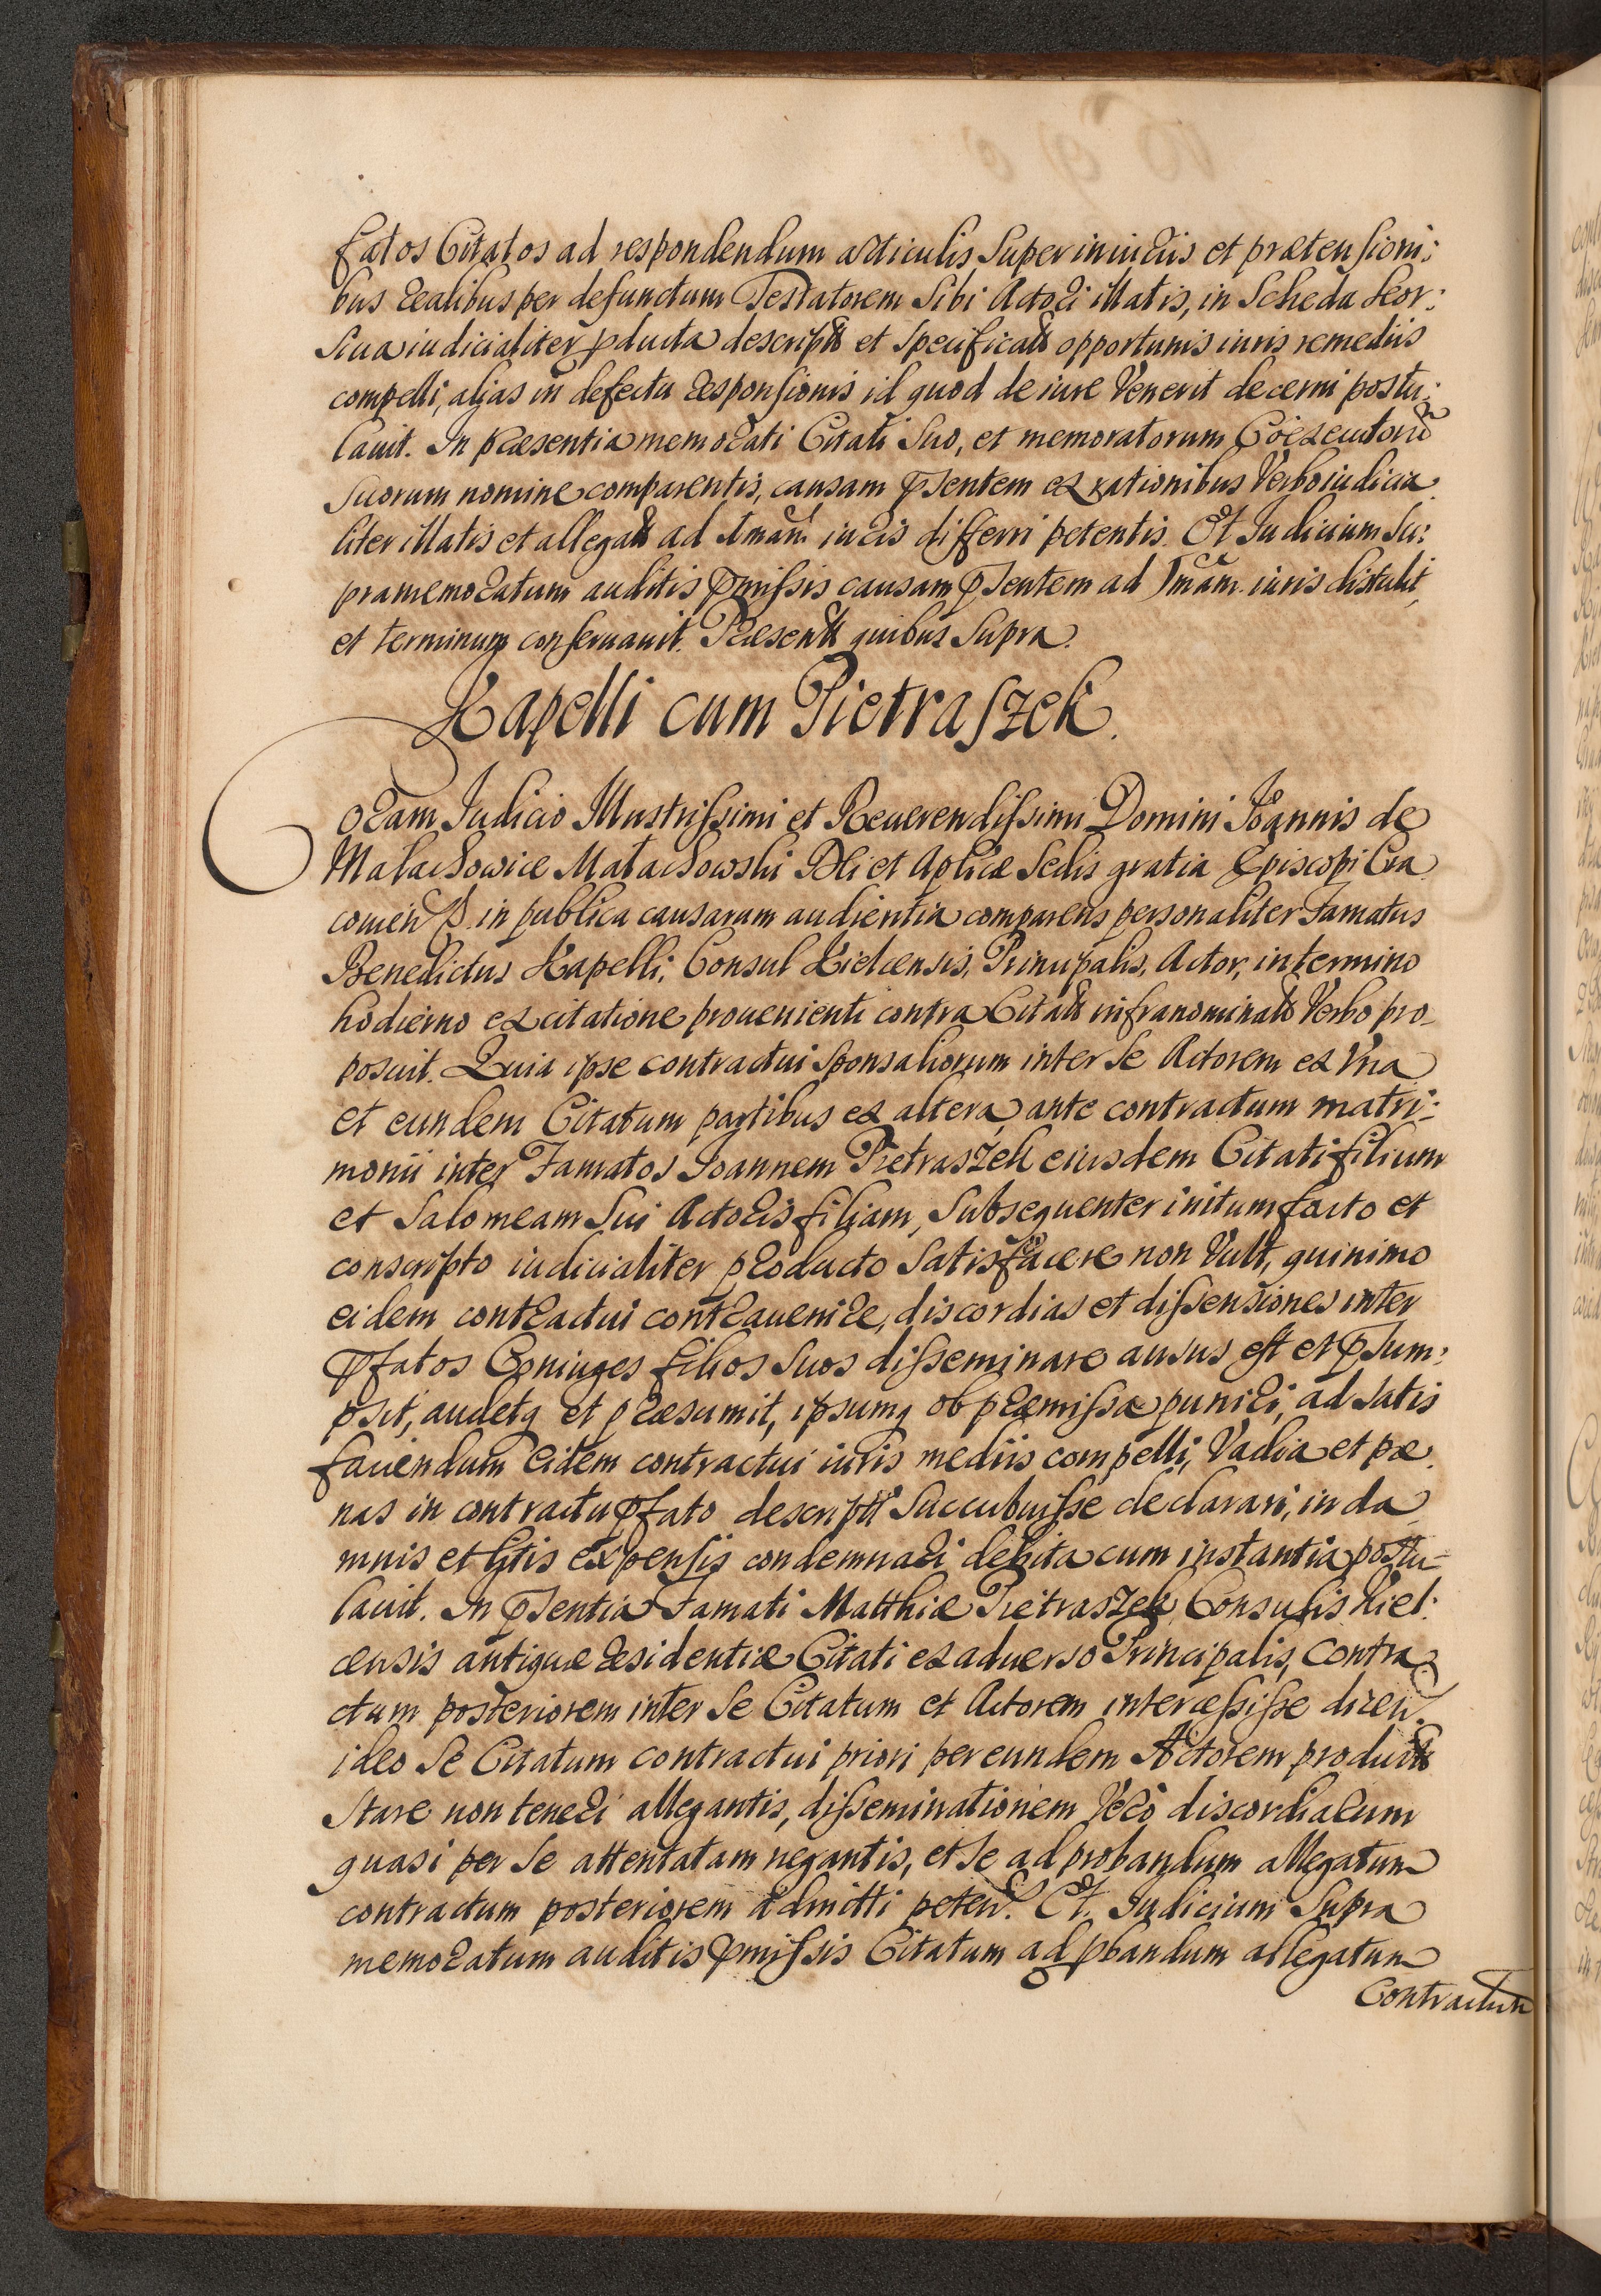 fatos Citatos ad respondendum articulis super iniuriis et prætensioni:
bus realibus per defunctum Testatorem sibi Actori illatis, in Scheda seor:
siua iudicialiter pducta descriptis et specificatis opportunis iuris remediis
compelli, alias in defectu responsionis id quod de iure Venerit decerni postu:
lauit. In præsentia memorati Citati suo, et memoratorum Coexecutorū
suorum nomine comparentis, causam pñtem ex rationibus Verbo iudicia
liter illatis et allegatis ad 1mam iuris differri petentis. Et Iudicium su:
pramemoratum auditis pmissis causam psentem ad 1mam iuris distulit,
et terminum conseruauit. Præsentibus quibus supra.
Kapelli cum Pietraszek.
Coram Iudicio Illustrissimi et Reuerendissimi Domini Ioannis de
Małachowice Małachowski Dei et Aplicæ Sedis gratia Episcopi Cra
couien̄ in publica causarum audientia comparens personaliter Famatus
Benedictus Kapelli, Consul Kielcensis, Principalis, Actor, in termino
hodierno ex citatione prouenienti contra Citatum infranominatum Verbo pro-
posuit. Quia ipse contractui sponsaliorum inter se Actorem ex Vna
et eundem Citatum partibus ex altera, ante contractum matri:
monii inter Famatos Ioannem Pietraszek eiusdem Citati filium
et Salomeam sui Actoris filiam, subsequenter initum facto et
conscripto iudicialiter producto satisfacere non Vult, quinimo
eidem contractui contrauenire, discordias et dissensiones inter
pfatos Coniuges filios suos disseminare ausus est et psum:
psit, audetq et præsumit, ipsumq ob præmissa puniri, ad satis
faciendum eidem contractui iuris mediis compelli, Vadia et pæ
nas in contractu pfato descriptas succubuisse declarari, in da
mnis et litis expensis condemnari debita cum instantia postu-
lauit. In psentia Famati Matthiæ Pietraszek Consulis Kiel:
censis antiquæ residentiæ Citati ex aduerso Principalis, contra
ctum posteriorem inter se Citatum et Actorem intercessisse dicen̄.
ideo se Citatum contractui priori per eundem Actorem producto
stare non teneri allegantis, disseminationem Vero discordiarum
quasi per se attentatam negantis, et se ad probandum allegatum
contractum posteriorem admitti peten̄. Et Iudicium supra
memoratum auditis pmissis Citatum ad pbandum allegatum
Contractum